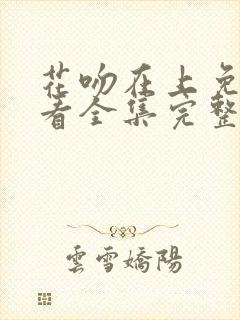 花吻在上免
看全集完整
雲雪嬌陽